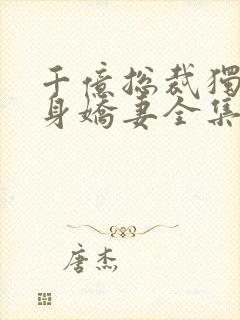 千億总裁獨
身嬌妻全集
唐杰